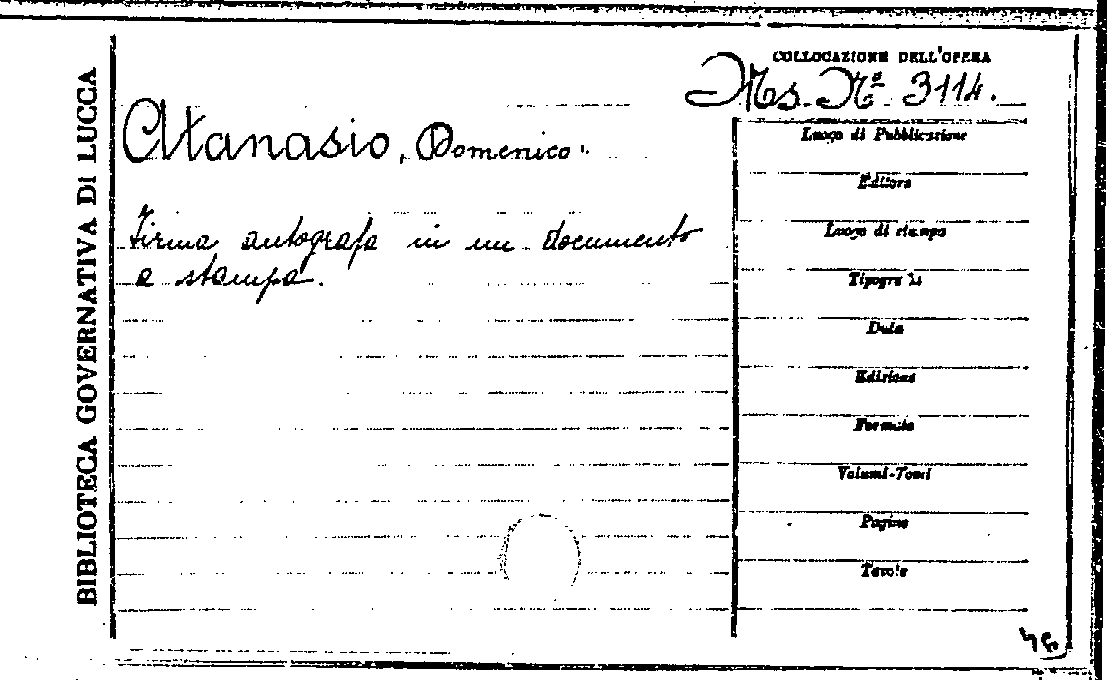 BIBLIOTECA GOVERNATIVA DI LUCCA
COLLOCAZIONE DELL'OPERA
Ms. Nº 3114.
Atanasio, Domenico.
Firma autografa in un documento
a stampa.
Luogo di Pubblicazione
Editore
Luogo di stampa
Tipografia
Data
Edizione
Formato
Volumi-Tomi
Pagine
Tavole